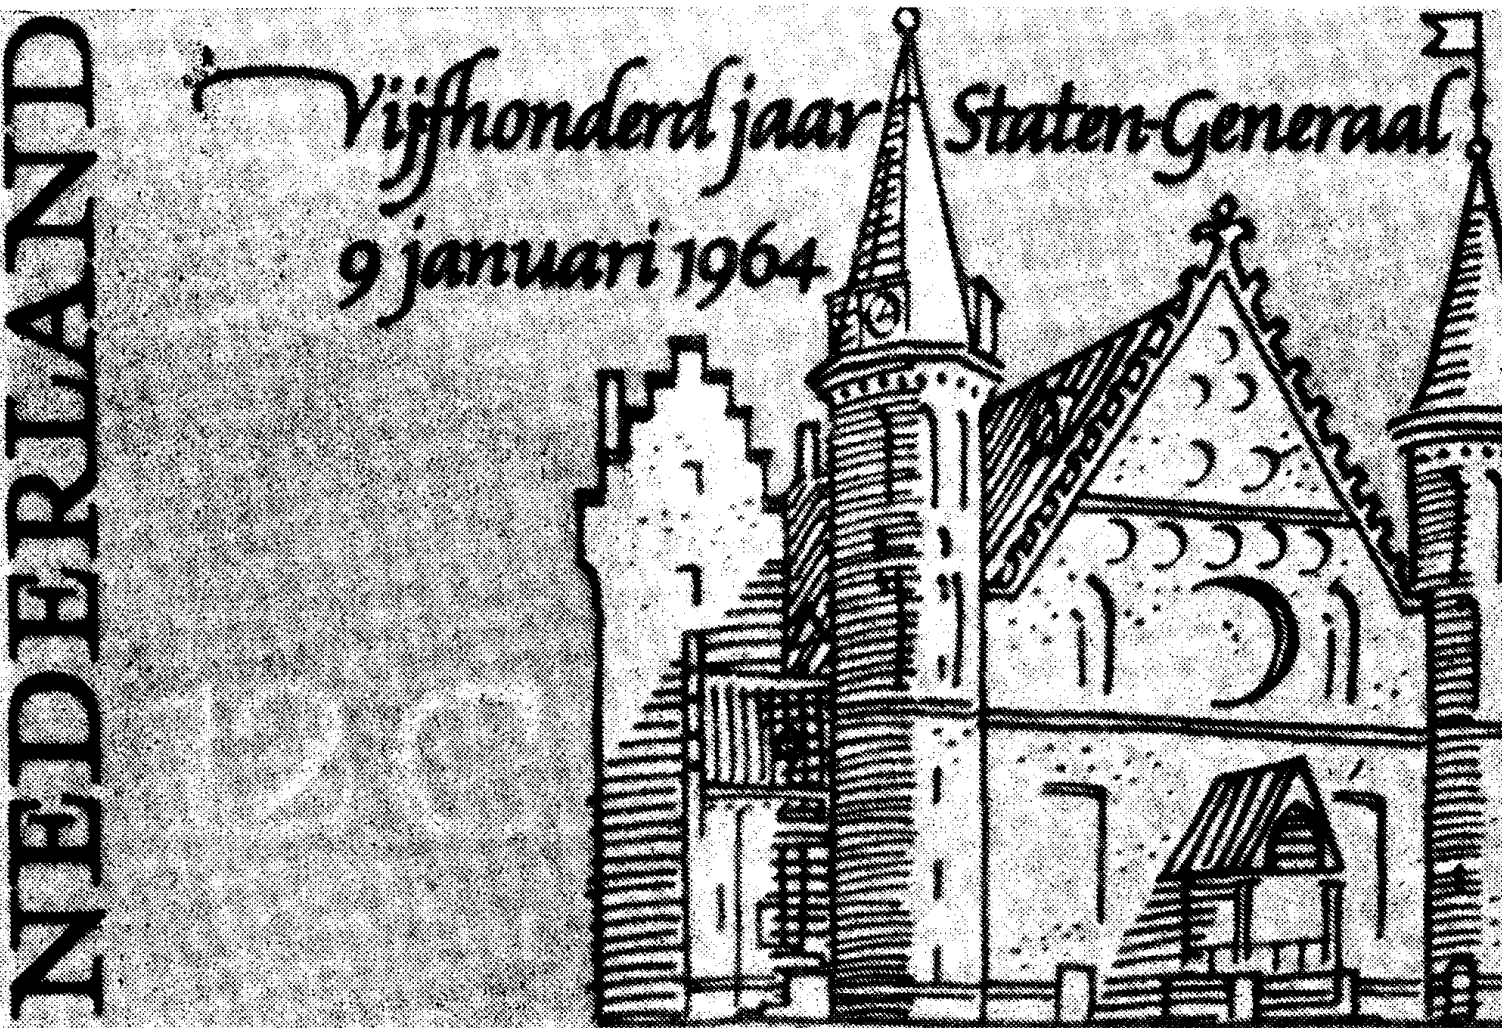 NEDERLAND
Vijfhonderd jaar Staten-Generaal
9 januari 1964